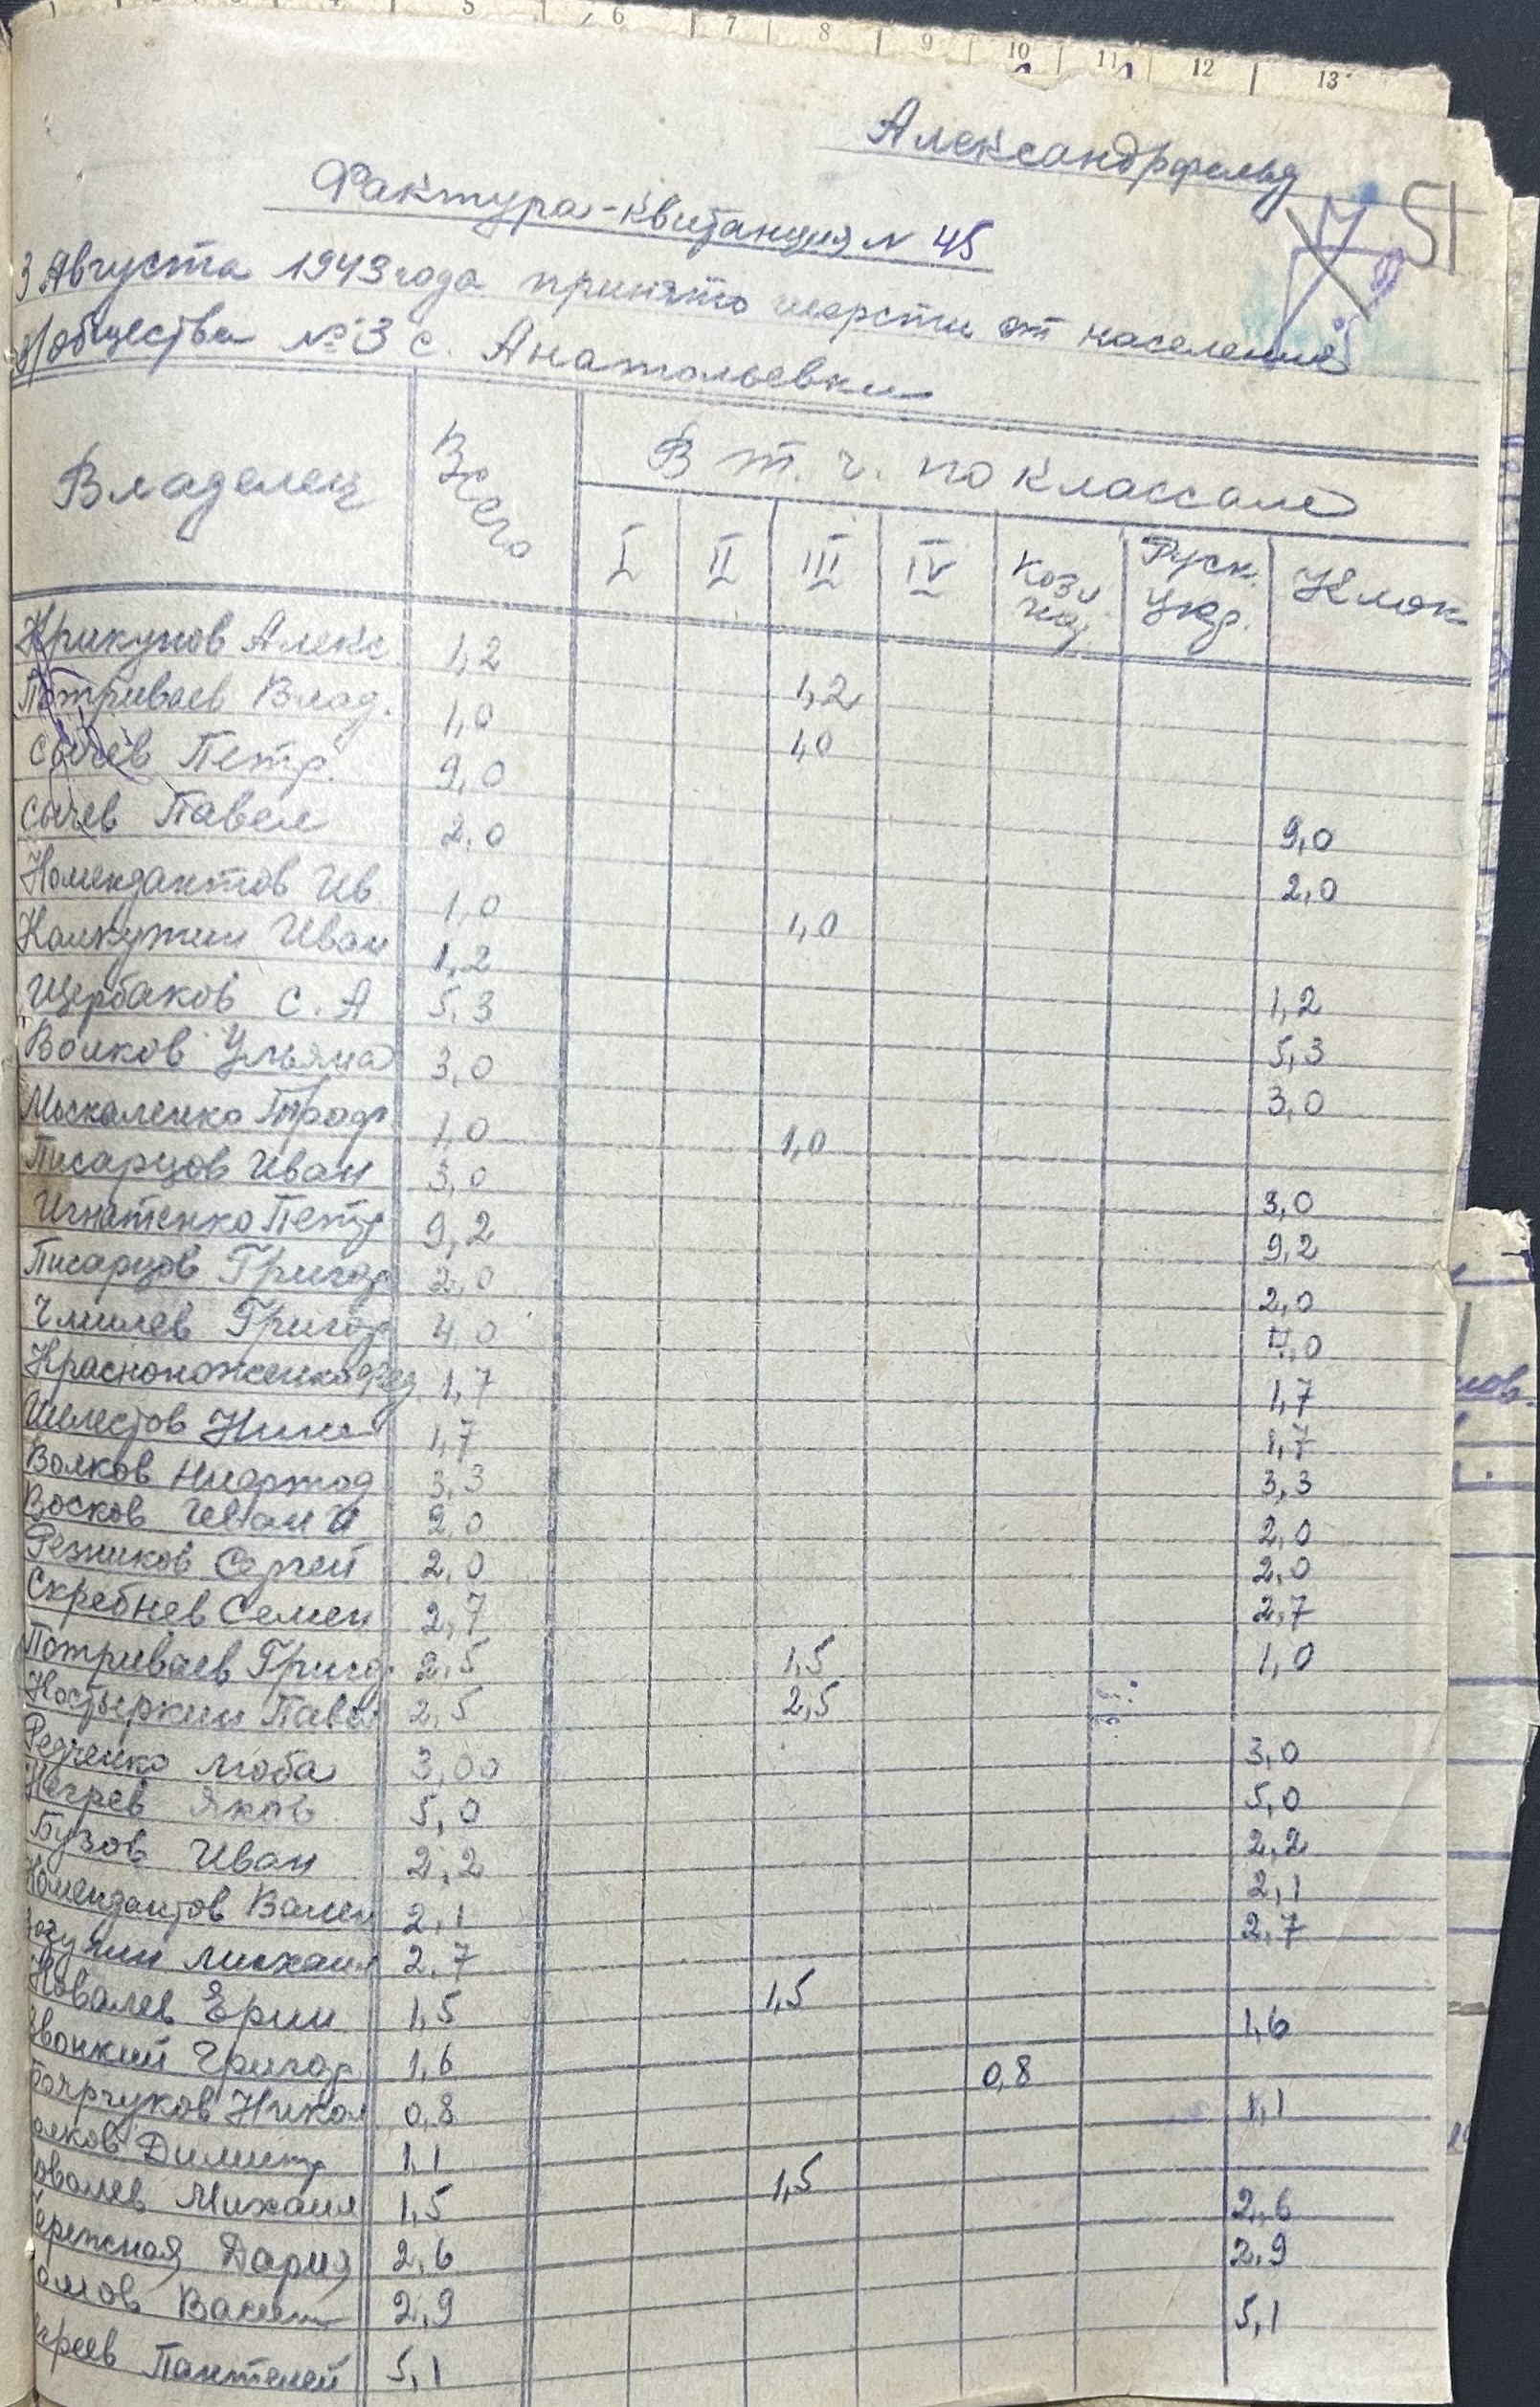 1 2 3 4 5 6 7 8 9 10 11 12 13
Александрфельд
51
Фактура-квитанция N 45
3 Августа 1943 года принято шерсти от населения
з/общества №3 с. Анатольевки
Владелец Всего В т. ч. по классам
I II III IV Кози Руск. Клок
Укр.
Крикунов Алекс 1,2 1,2
Потриваев Влад. 1,0 1,0
Сычев Петр. 9,0 9,0
Сычев Павел 2,0 2,0
Комендантов Ив 1,0 1,0
Иван 1,2 1,2
Щербаков С. А 5,3 5,3
Волков Ульяна 3,0 3,0
Москаленко Троф. 1,0 1,0
Писарцов Иван 3,0 3,0
Игнатенко Петр 9,2 9,2
Писарцов Григор 2,0 2,0
Чмилев Григор 4,0 4,0
Красноноженко Фед. 1,7 1,7
Шелестов 1,7 1,7
Волков 3,3 3,3
Восков Иван И 2,0 2,0
Резников Сергей 2,0 2,0
Скребнев Семен 2,7 2,7
Потриваев Григор 2,5 1,5 1,0
Костыркин Павел 2,5 2,5
Редченко Люба 3,00 3,0
Негрев Яков 5,0 5,0
Бузов Иван 2,2 2,2
Комендантов Вален 2,1 2,1
Михаил 2,7 2,7
Ковалев Ерим 1,5 1,5
Звонкий Григор 1,6 1,6
Никол 0,8 0,8
олков Димитр 1,1 1,1
овалев Михаил 1,5 1,5
ережная Дария 2,6 2,6
Васил 2,9 2,9
Пантелей 5,1 5,1